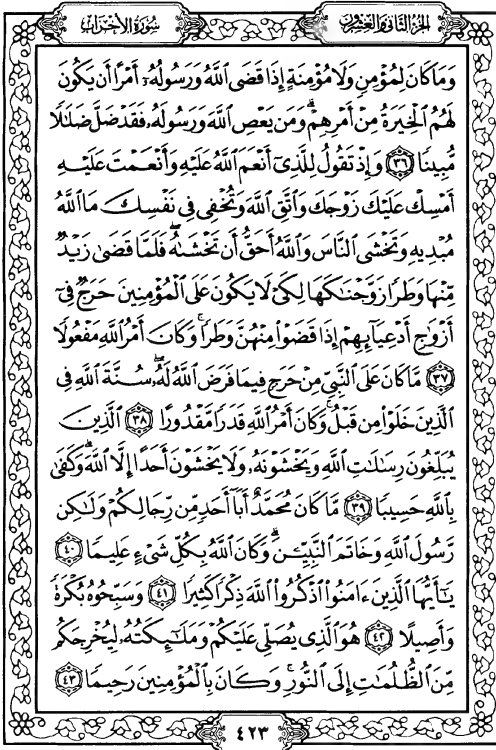 الجزء الثاني والعشرون
سورة الأحزاب
وَمَا كَانَ لِمُؤْمِنٍ وَلَا مُؤْمِنَةٍ إِذَا قَضَى ٱللَّهُ وَرَسُولُهُۥٓ أَمْرًا أَن يَكُونَ
لَهُمُ ٱلْخِيَرَةُ مِنْ أَمْرِهِمْۗ وَمَن يَعْصِ ٱللَّهَ وَرَسُولَهُۥ فَقَدْ ضَلَّ ضَلَٰلًا
مُّبِينًا ٣٦ وَإِذْ تَقُولُ لِلَّذِىٓ أَنْعَمَ ٱللَّهُ عَلَيْهِ وَأَنْعَمْتَ عَلَيْهِ
أَمْسِكْ عَلَيْكَ زَوْجَكَ وَٱتَّقِ ٱللَّهَ وَتُخْفِى فِى نَفْسِكَ مَا ٱللَّهُ
مُبْدِيهِ وَتَخْشَى ٱلنَّاسَ وَٱللَّهُ أَحَقُّ أَن تَخْشَىٰهُۖ فَلَمَّا قَضَىٰ زَيْدٌ
مِّنْهَا وَطَرًا زَوَّجْنَٰكَهَا لِكَىْ لَا يَكُونَ عَلَى ٱلْمُؤْمِنِينَ حَرَجٌ فِىٓ
أَزْوَٰجِ أَدْعِيَآئِهِمْ إِذَا قَضَوْا۟ مِنْهُنَّ وَطَرًاۚ وَكَانَ أَمْرُ ٱللَّهِ مَفْعُولًا
٣٧ مَّا كَانَ عَلَى ٱلنَّبِىِّ مِنْ حَرَجٍ فِيمَا فَرَضَ ٱللَّهُ لَهُۥۖ سُنَّةَ ٱللَّهِ فِى
ٱلَّذِينَ خَلَوْا۟ مِن قَبْلُۚ وَكَانَ أَمْرُ ٱللَّهِ قَدَرًا مَّقْدُورًا ٣٨ ٱلَّذِينَ
يُبَلِّغُونَ رِسَٰلَٰتِ ٱللَّهِ وَيَخْشَوْنَهُۥ وَلَا يَخْشَوْنَ أَحَدًا إِلَّا ٱللَّهَۗ وَكَفَىٰ
بِٱللَّهِ حَسِيبًا ٣٩ مَّا كَانَ مُحَمَّدٌ أَبَآ أَحَدٍ مِّن رِّجَالِكُمْ وَلَٰكِن
رَّسُولَ ٱللَّهِ وَخَاتَمَ ٱلنَّبِيِّـۧنَۗ وَكَانَ ٱللَّهُ بِكُلِّ شَىْءٍ عَلِيمًا ٤٠
يَٰٓأَيُّهَا ٱلَّذِينَ ءَامَنُوا۟ ٱذْكُرُوا۟ ٱللَّهَ ذِكْرًا كَثِيرًا ٤١ وَسَبِّحُوهُ بُكْرَةً
وَأَصِيلًا ٤٢ هُوَ ٱلَّذِى يُصَلِّى عَلَيْكُمْ وَمَلَٰٓئِكَتُهُۥ لِيُخْرِجَكُم
مِّنَ ٱلظُّلُمَٰتِ إِلَى ٱلنُّورِۚ وَكَانَ بِٱلْمُؤْمِنِينَ رَحِيمًا ٤٣
٤٢٣